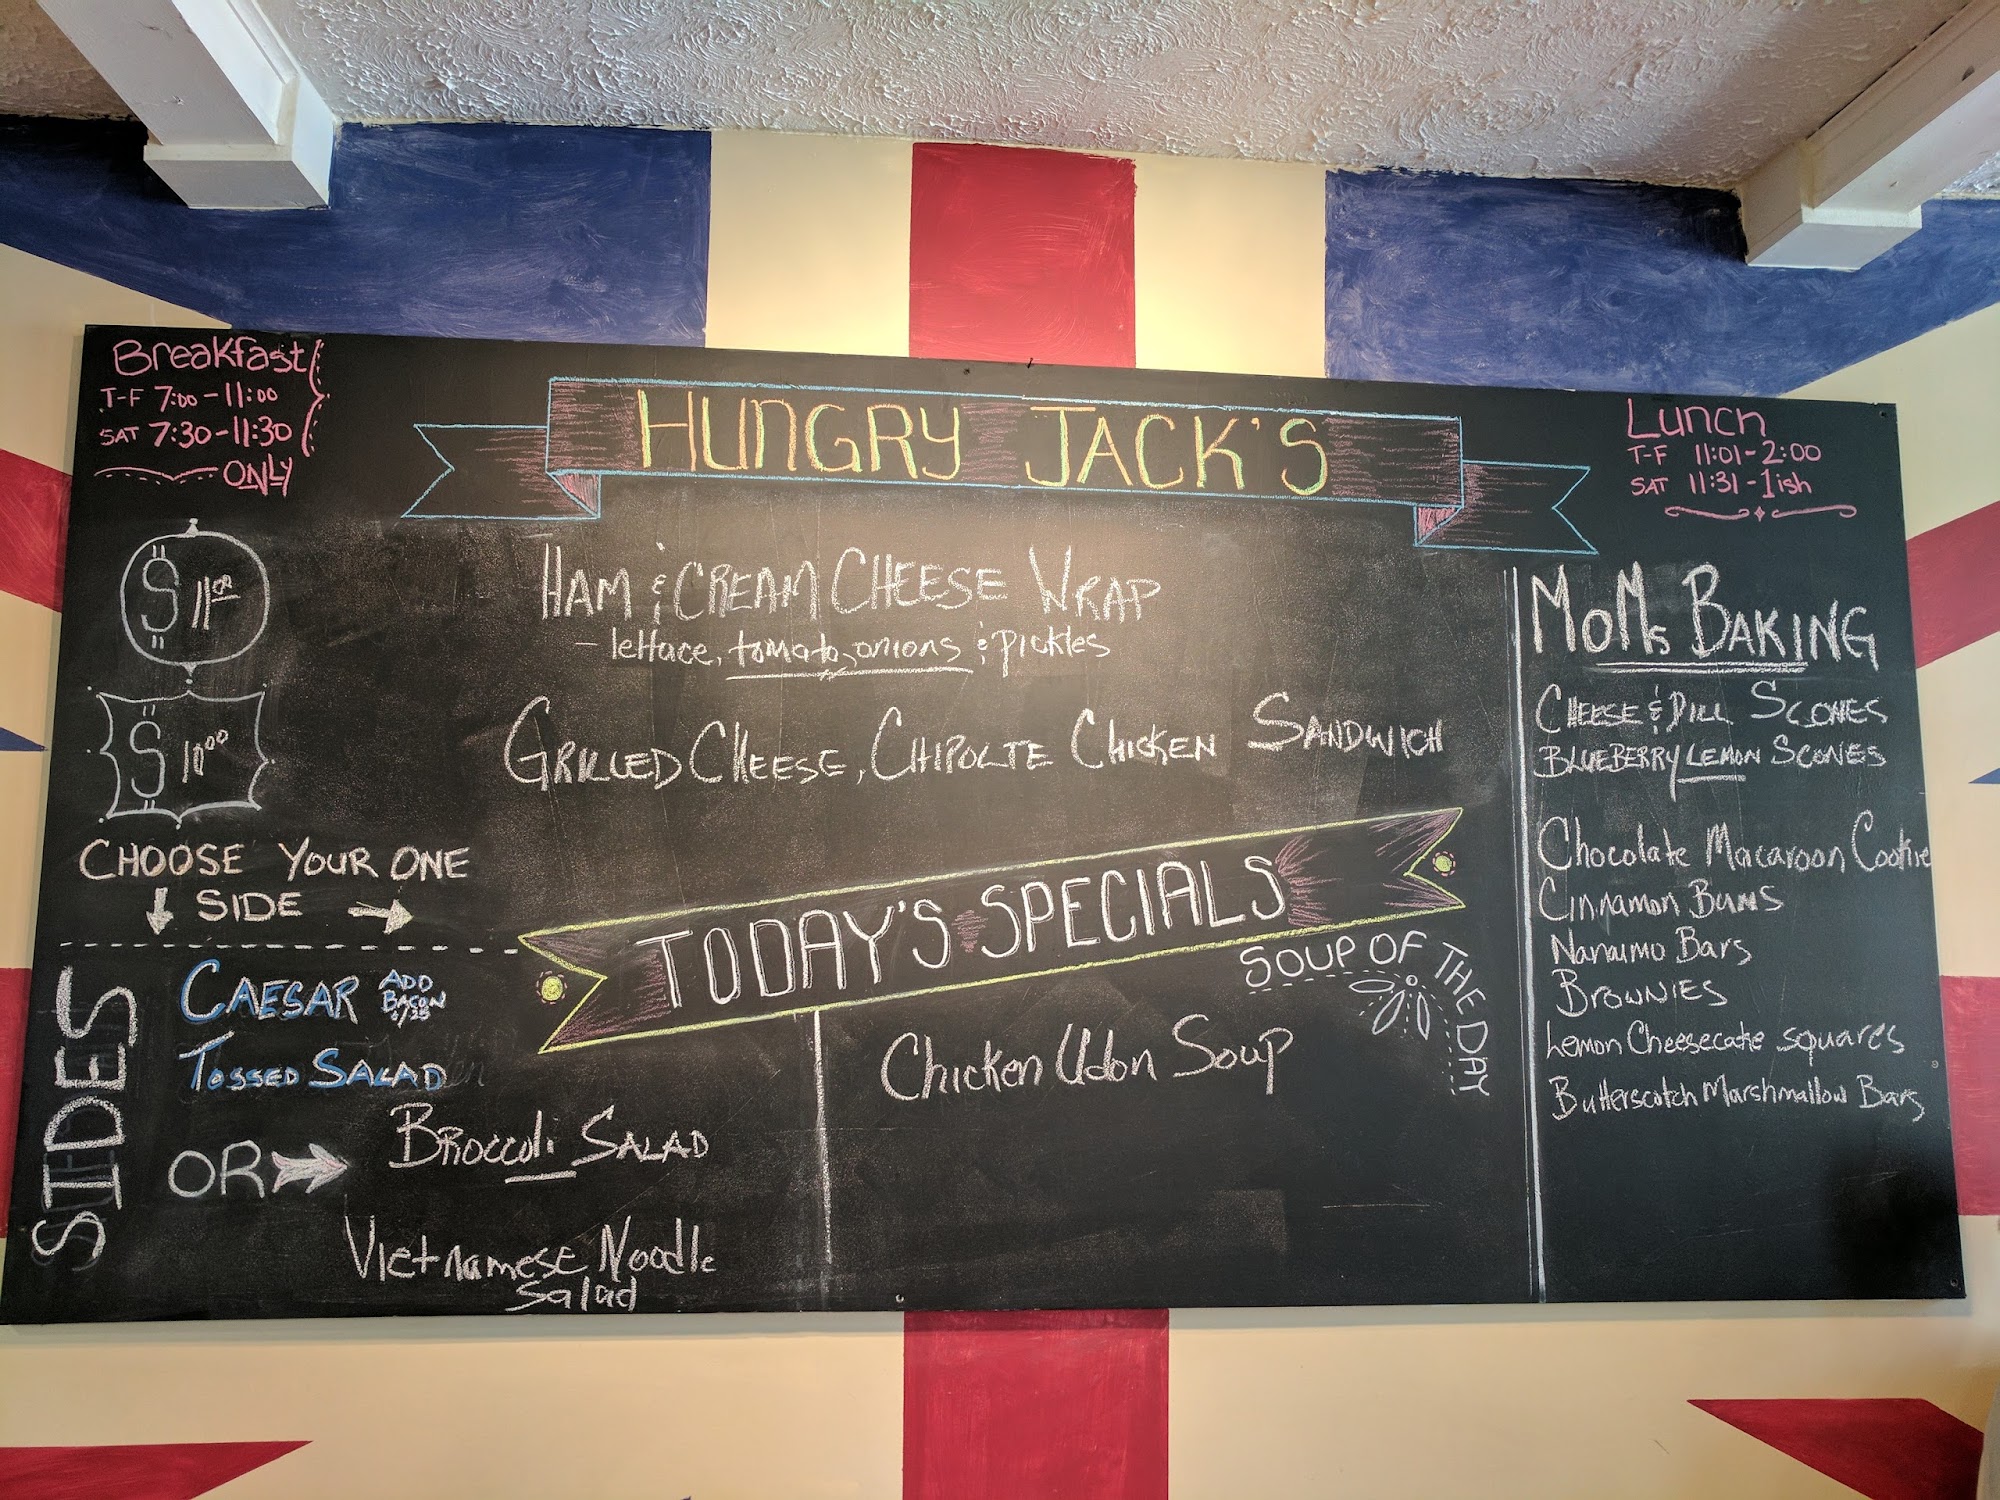 Breakfast
T-F 7:00-11:00
SAT 7:30-11:30
ONLY
HUNGRY JACK'S
Lunch
T-F 11:01-2:00
SAT 11:31-1ish
$ 11.00
HAM & CREAM CHEESE WRAP
- lettace, tomato, onions & pickles
$ 10.00
GRILLED CHEESE, CHIPOLTE CHICKEN SANDWICH
CHOOSE YOUR ONE
SIDE
SIDES
CAESAR ADD
BACON
TOSSED SALAD
OR
BROCCOLI SALAD
Vietnamese Noodle
Salad
TODAY'S SPECIALS
SOUP OF THE DAY
Chicken Udon Soup
MOMs BAKING
CHEESE & DILL SCONES
BLUEBERRY LEMON SCONES
Chocolate Macaroon Cookie
Cinnamon Buns
Nanaimo Bars
BROWNIES
Lemon Cheesecake squares
Butterscotch Marshmallow Bars